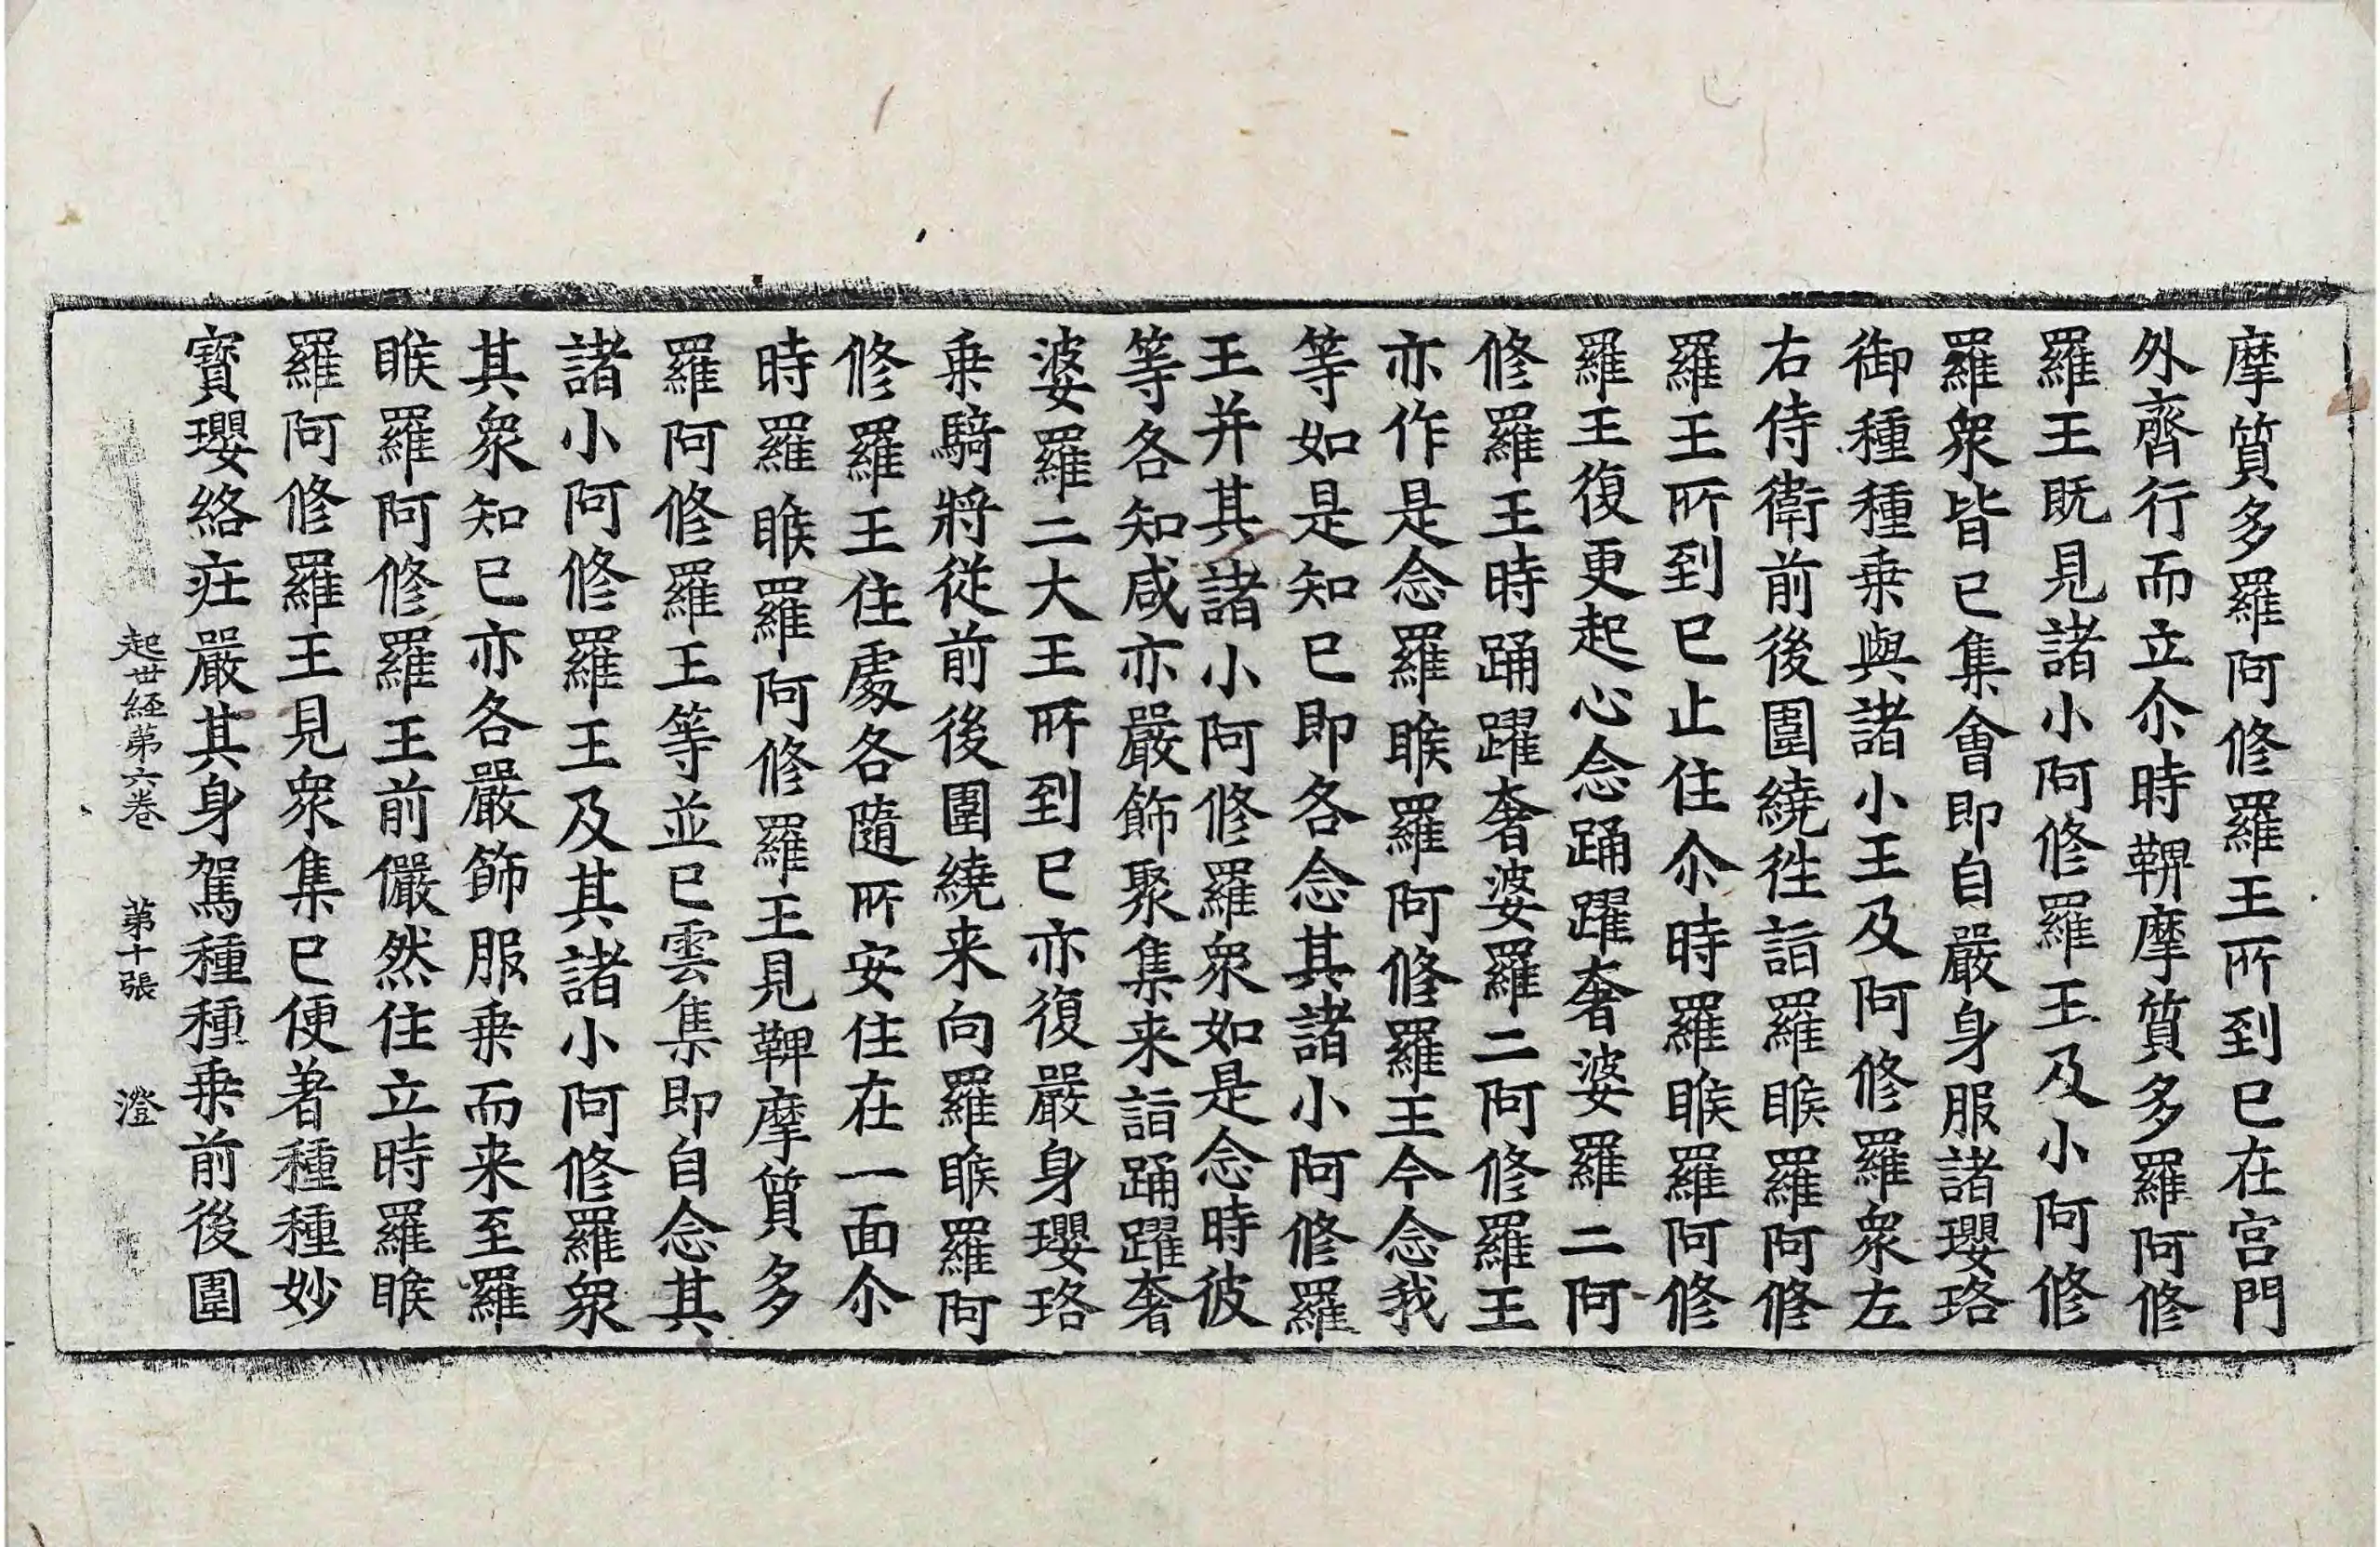 摩質多羅阿修羅王所到已在宫門
外齊行而立尒時鞞摩質多羅阿修
羅王既見諸小阿修羅王及小阿修
羅衆皆已集會即自嚴身服諸瓔珞
御種種乗與諸小王及阿修羅衆左
右侍衛前後圍繞徃詣羅睺羅阿修
羅王所到已止住尒時羅睺羅阿修
羅王復更起心念踊躍奢婆羅二阿
修羅王時踊躍奢婆羅二阿修羅王
亦作是念羅睺羅阿修羅王今念我
等如是知已即各念其諸小阿修羅
王并其諸小阿修羅衆如是念時彼
等各知咸亦嚴飾聚集来詣踊躍奢
婆羅二大王所到已亦復嚴身瓔珞
乗騎將従前後圍繞来向羅睺羅阿
修羅王住處各隨所安住在一面尒
時羅睺羅阿修羅王見鞞摩質多
羅阿修羅王等並已雲集即自念其
諸小阿修羅王及其諸小阿修羅衆
其衆知已亦各嚴飾服乗而来至羅
睺羅阿修羅王前儼然住立時羅睺
羅阿修羅王見衆集已便著種種妙
寳瓔絡庄嚴其身駕種種乗前後圍
起世経第六卷　第十張　澄